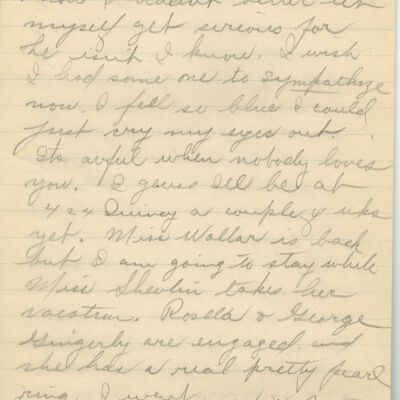 myself get serious for
he isn't I know. I wish
I had some one to sympathize
now. I fell so blue I could
just cry my eyes out.
Its awful when nobody loves
you. I guess Ill be at
424 Quincy a couple of wks
yet. Miss Wallar is back
but I am going to stay while
Miss Shevlin takes her
vacation. Rosella & George
Gingerly are engaged and
she has a real pretty pearl
ring. I went